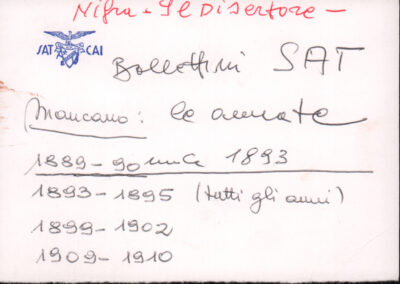 Nifra - Il Disertore -
SAT CAI
Bollettini SAT
Mancano: le annate
1889-90 1893
1893-1895 (tutti gli anni)
1899-1902
1909-1910